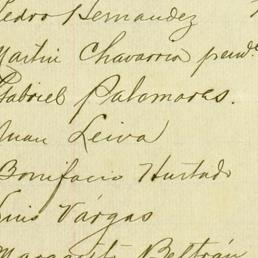 Pedro Hernandez
Martin Chavarria pend.
Gabriel Palomares.
Juan Leiva
Bonifacio Hurtado
Luis Vargas
Margarito Beltrán